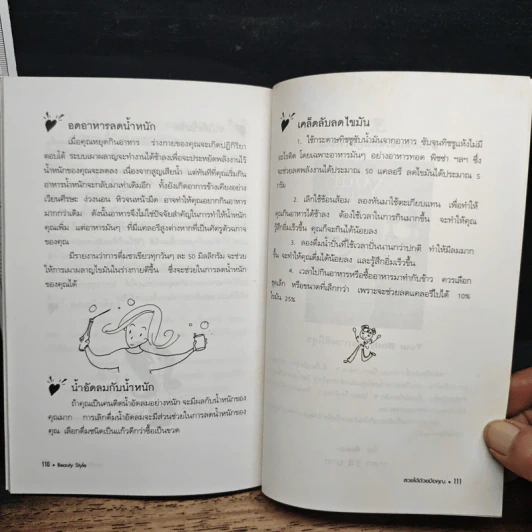 อดอาหารลดน้ำหนัก
เมื่อคุณหยุดกินอาหาร ร่างกายของคุณจะเกิดปฏิกิริยา
ตอบโต้ ระบบเผาผลาญจะทำงานได้ช้าลงเพื่อจะประหยัดพลังงานไว้
น้ำหนักของคุณจะลดลง เนื่องจากสูญเสียน้ำ แต่ทันทีที่คุณเริ่มกิน
อาหารน้ำหนักจะกลับมาเท่าเดิมอีก ทั้งยังเกิดอาการข้างเคียงอย่าง
เวียนศีรษะ ง่วงนอน หิวจนหน้ามืด อาจทำให้คุณอยากกินอาหาร
มากกว่าเดิม ดังนั้นอาหารจึงไม่ใช่ปัจจัยสำคัญในการทำให้น้ำหนัก
คุณเพิ่ม แต่อาหารมันๆ ที่มีแคลอรีสูงต่างหากที่เป็นศัตรูตัวเอก
ของคุณ
มีรายงานว่าการดื่มชาเขียวทุกวันๆ ละ 50 มิลลิกรัม จะช่วย
ให้การเผาผลาญไขมันในร่างกายดีขึ้น ซึ่งจะช่วยในการลดน้ำหนัก
ของคุณได้
น้ำอัดลมกับน้ำหนัก
ถ้าคุณเป็นคนติดน้ำอัดลมอย่างหนัก จะมีผลกับน้ำหนักของ
คุณมาก การเลิกดื่มน้ำอัดลมจะมีส่วนช่วยในการลดน้ำหนักของ
คุณ เลือกดื่มชนิดเป็นแก้วดีกว่าซื้อเป็นขวด
110 • Beauty Style
เคล็ดลับลดไขมัน
1. ใช้กระดาษทิชชูซับน้ำมันจากอาหาร ซับจนทิชชูแห้งไม่มี
อะไรติด โดยเฉพาะอาหารมันๆ อย่างอาหารทอด พิซซ่า ฯลฯ ซึ่ง
จะช่วยลดพลังงานได้ประมาณ 50 แคลอรี ลดไขมันได้ประมาณ 5
กรัม
2. เลิกใช้ช้อนส้อม ลองหันมาใช้ตะเกียบแทน เพื่อทำให้
คุณกินอาหารได้ช้าลง ต้องใช้เวลาในการกินมากขึ้น จะทำให้คุณ
รู้สึกอิ่มเร็วขึ้น คุณก็จะกินได้น้อยลง
3. ลองดื่มน้ำปั่นที่ใช้เวลาปั่นนานกว่าปกติ ทำให้มีลมมาก
ขึ้น จะทำให้คุณดื่มได้น้อยลง และรู้สึกอิ่มเร็วขึ้น
4. เวลาไปกินอาหารหรือซื้ออาหารมาทำกับข้าว ควรเลือก
ชุดเล็ก หรือขนาดที่เล็กกว่า เพราะจะช่วยลดแคลอรีไปได้ 10%
ไขมัน 25%
สวยได้ด้วยมือคุณ • 111